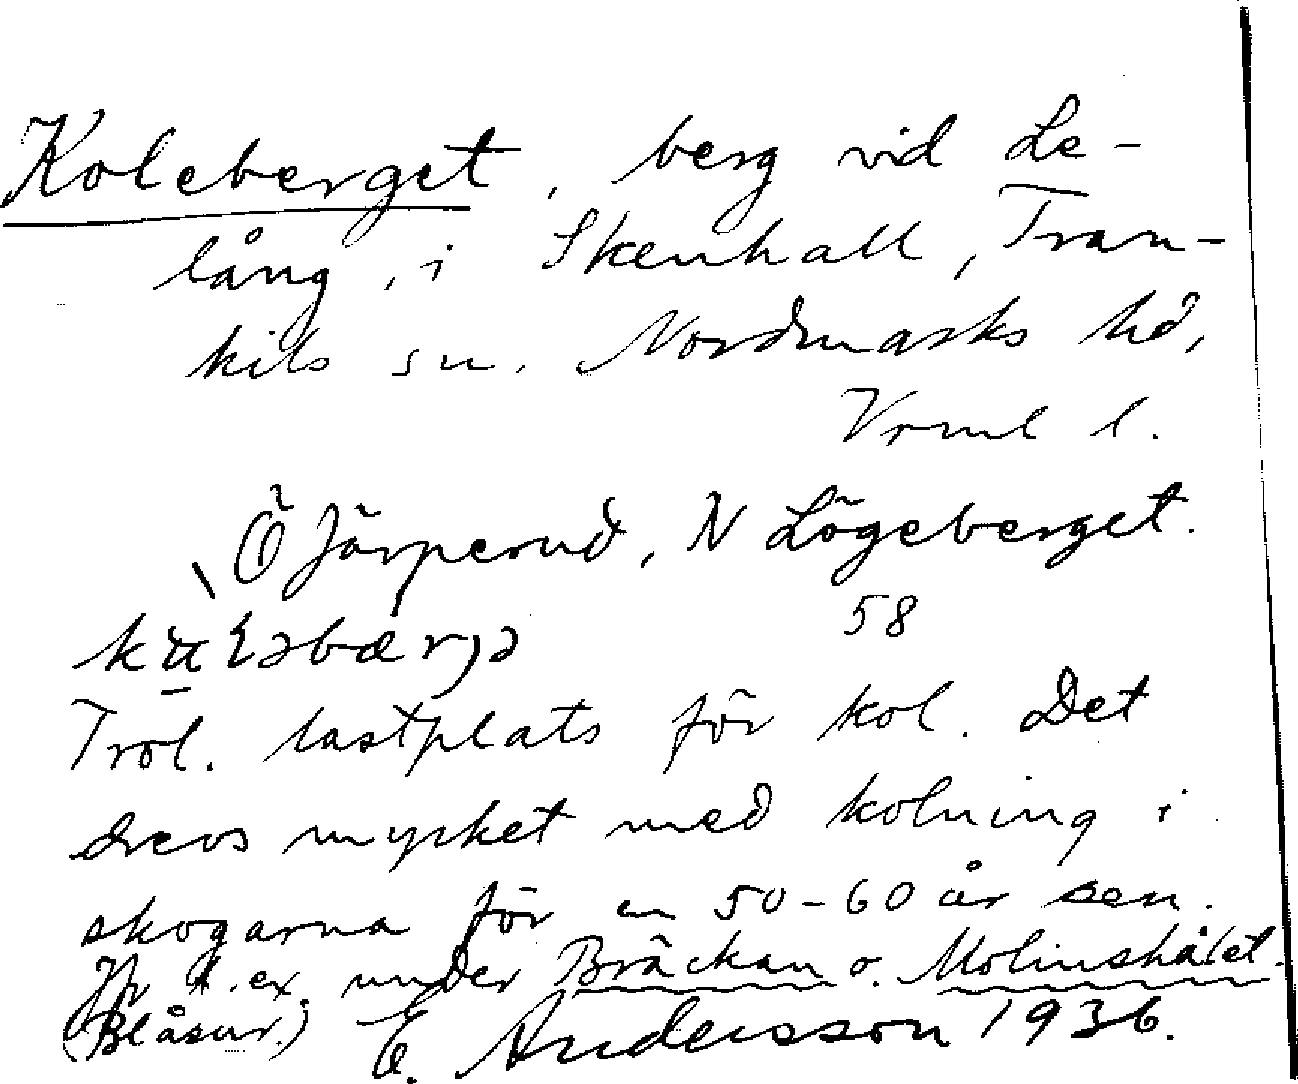 Koleberget, berg vid Le-
lång, i Skenhall, Tran-
kils sn. Nordmarks hd,
Vrml l.
Ö Järperud, N Lögeberget.
58
Trol. lastplats för kol. Det
drevs mycket med kolning i
skogarna för en 50-60 år sen.
Jfr t.ex. under Bräckan o. Molinshålet.
(Blåsur.) E. Andersson 1936.